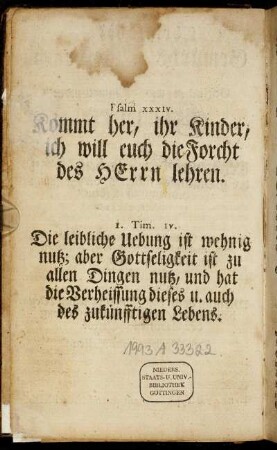 Psalm xxxiv.
Kommt her, ihr Kinder,
ich will euch die Forcht
des HErrn lehren.
1. Tim. iv.
Die leibliche Uebung ist wehnig
nutz; aber Gottseligkeit ist zu
allen Dingen nutz, und hat
die Verheissung dieses u. auch
des zukünfftigen Lebens.
1993 A 33322
NIEDERS.
STAATS-U. UNIV.-
BIBLIOTHEK
GÖTTINGEN